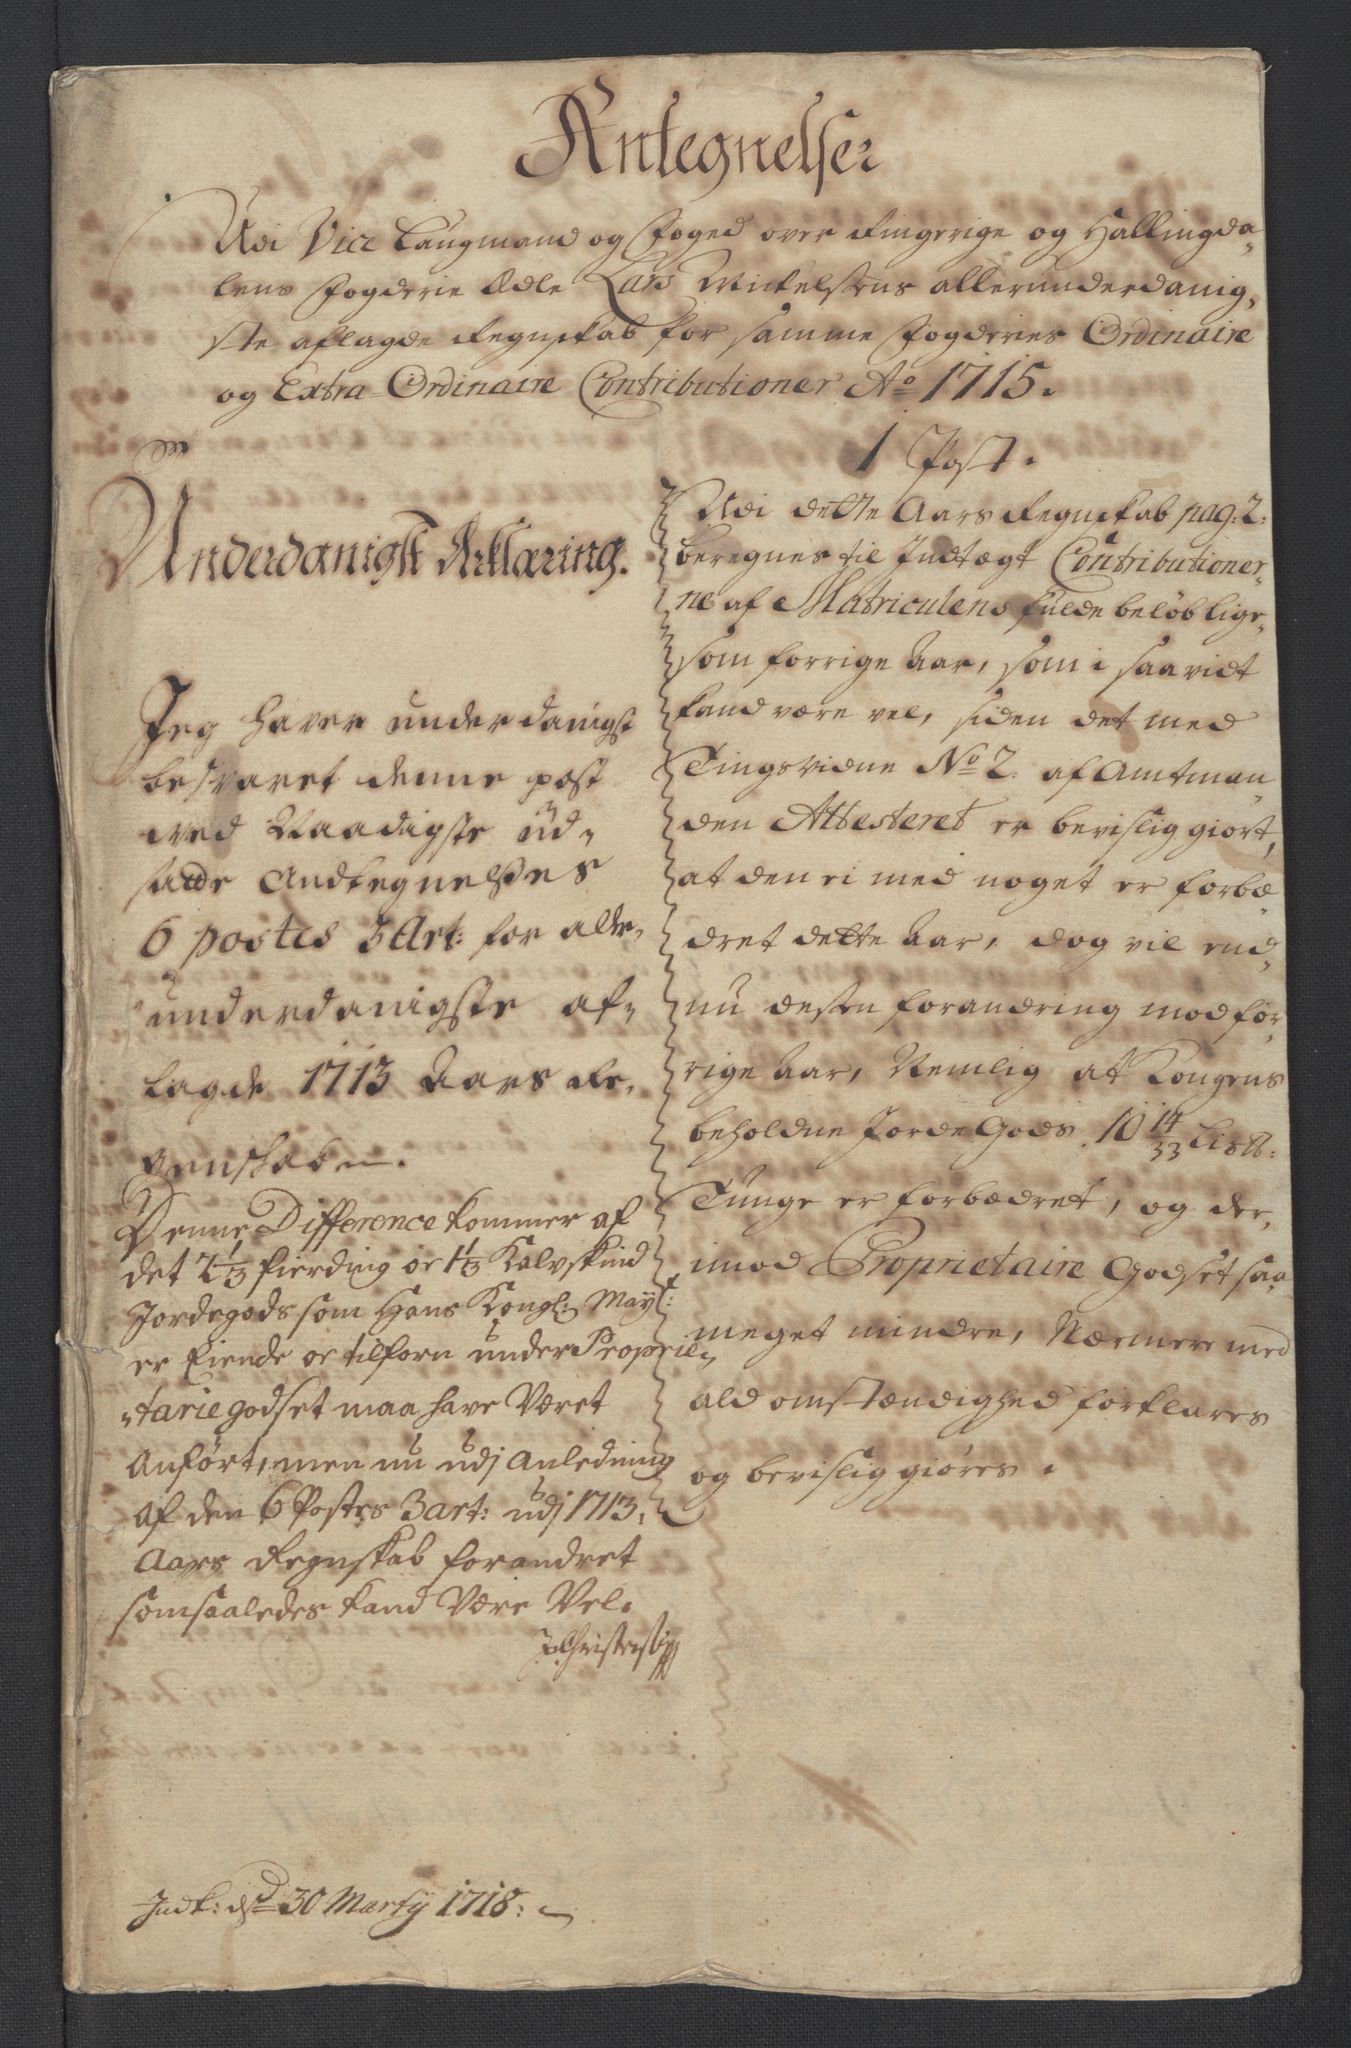 Antegnelser
Udi Vice Laugmand og Foged over Ringerige og Hallingda-
lens Fogderie Edle Lars Mickelsens allerunderdanig-
ste aflagde Regnskab for samme Fogderies Ordinaire
og Extra-Ordinaire Contributioner Ao 1715.
Underdanigst Erklæring.
Jeg haver underdanigst
besvaret denne post
ved Naadigste ud-
satte Andtegnelses
6 postes 3 Art: for aller-
underdanigste af-
lagde 1713 Aars Re-
genskaben.
Denne Difference kommer af
det 2 1/3 fierding oc 1 1/3 Kalvskind
Jordegods som Hans Kongl: Mayt:
er Eiende oc tilforn under Proprie-
tarie godset maa have Været
Anført, men nu udj Anledning
af den 6 Postes 3 art: udj 1713.
Aars Regnskab forandret
som saaledes kand Være Vel.
Indk: d. 30 Marty 1718.
1 Post.
Udi dette Aars Regnskab pag: 2:
beregnes til Indtægt Contributioner-
ne af Matriculens fulde beløb lige-
som forrige Aar, som i saavidt
kand være vel, siden det med
Tingsvidne No 2. af Amtman-
den Attesteret er bevislig giort,
at den ei med noget er forbe-
dret dette Aar, dog vil end-
nu dessen forandring mod for-
rige Aar, Nemlig at Kongens
beholdne Jorde Gods 10 14/33 Lispd:
Tunge er forbedret, og der-
imod Proprietaire Godset saa
meget mindre, Nærmere med
ald omstændighed forklares
og bevislig giøres.